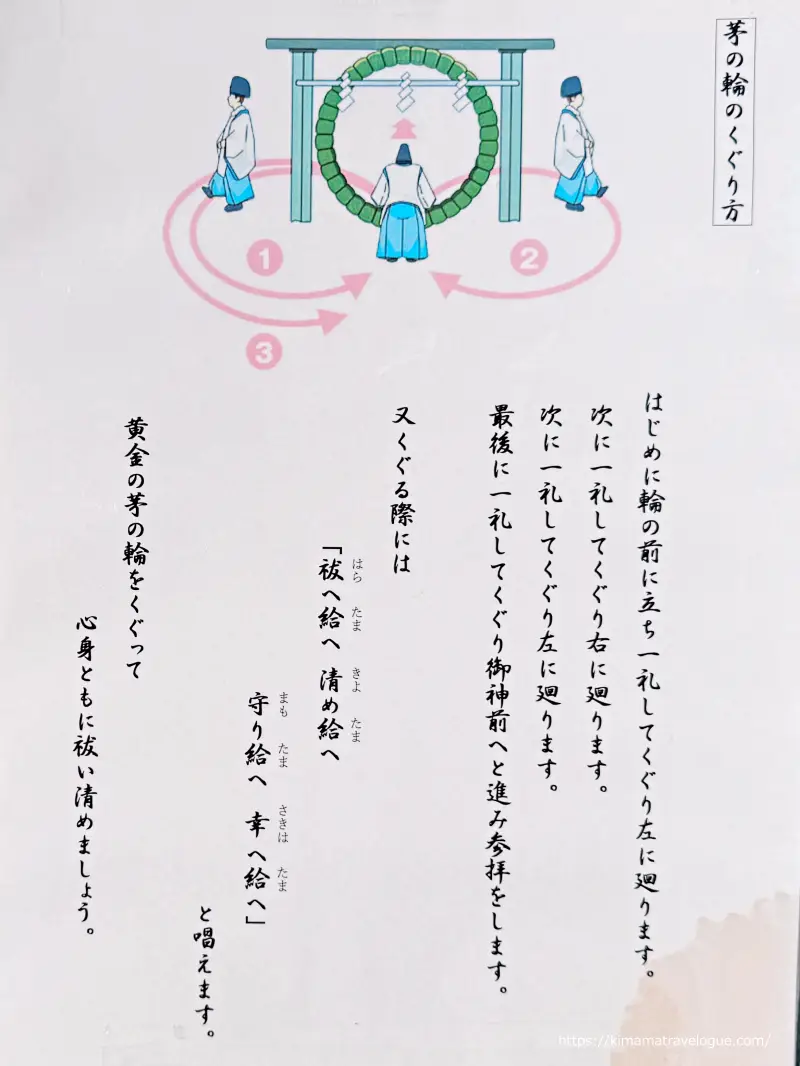 茅の輪のくぐり方
1
2
3
はじめに輪の前に立ち一礼してくぐり左に廻ります。
次に一礼してくぐり右に廻ります。
次に一礼してくぐり左に廻ります。
最後に一礼してくぐり御神前へと進み参拝をします。
又くぐる際には
「祓へ給へ 清め給へ
はら たま きよ たま
守り給へ 幸へ給へ」
まも たま さきは たま
と唱えます。
黄金の茅の輪をくぐって
心身ともに祓い清めましょう。
https://kimamatravelogue.com/